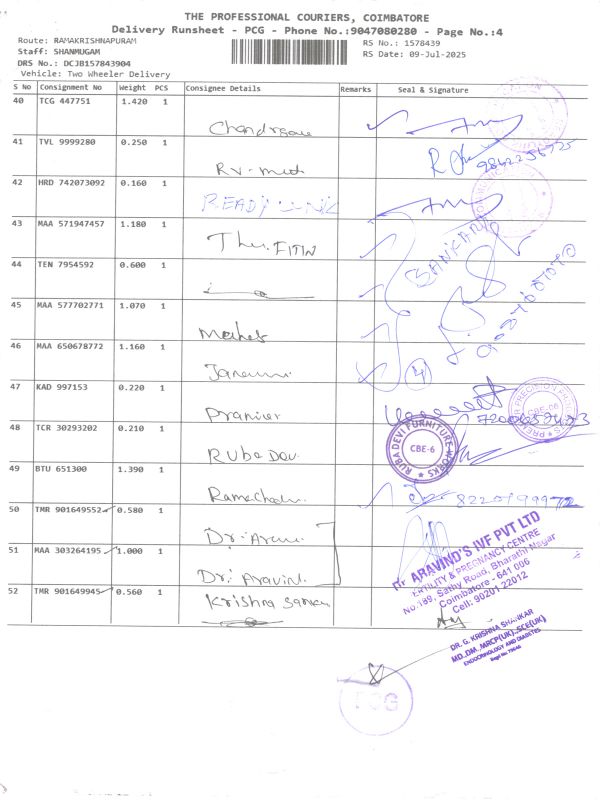 THE PROFESSIONAL COURIERS, COIMBATORE
Delivery Runsheet - PCG - Phone No.:9047080280 - Page No.:4
Route: RAMAKRISHNAPURAM
RS No.: 1578439
Staff: SHANMUGAM
RS Date: 09-Jul-2025
DRS No.: DCJB157843904
Vehicle: Two Wheeler Delivery
S No Consignment No Weight PCS Consignee Details Remarks Seal & Signature
40 TCG 447751 1.420 1
41 TVL 9999280 0.250 1
Rv. med
42 HRD 742073092 0.160 1
READY LINK
43 MAA 571947457 1.180 1
SANKAR
44 TEN 7954592 0.600 1
45 MAA 577702771 1.070 1
46 MAA 650678772 1.160 1
4
47 KAD 997153 0.220 1
Premier
PREMIER PRECISION
CBE-06
48 TCR 30293202 0.210 1
Ruba Devi
RUBA DEVI FURNITURE WORKS
CBE-6
49 BTU 651300 1.390 1
8220199972
50 TMR 901649552 0.580 1
51 MAA 303264195 1.000 1
Dr: Aravind
Dr ARAVIND'S IVF PVT LTD
FERTILITY & PREGNANCY CENTRE
No.189, Sathy Road, Bharathi Nagar
Coimbatore - 641 006
Cell: 90201 22012
52 TMR 901649945 0.560 1
Krishna Sankar
DR. G. KRISHNA SHANKAR
MD.,DM.,MRCP(UK).,SCE(UK)
ENDOCRINOLOGY AND DIABETES
PCG